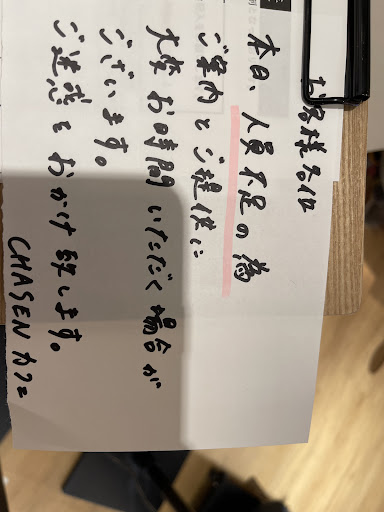 お客様各位
本日、人員不足の為
ご案内とご提供に
大変お時間いただく場合が
ございます。
ご迷惑をおかけ致します。
CHASENカフェ